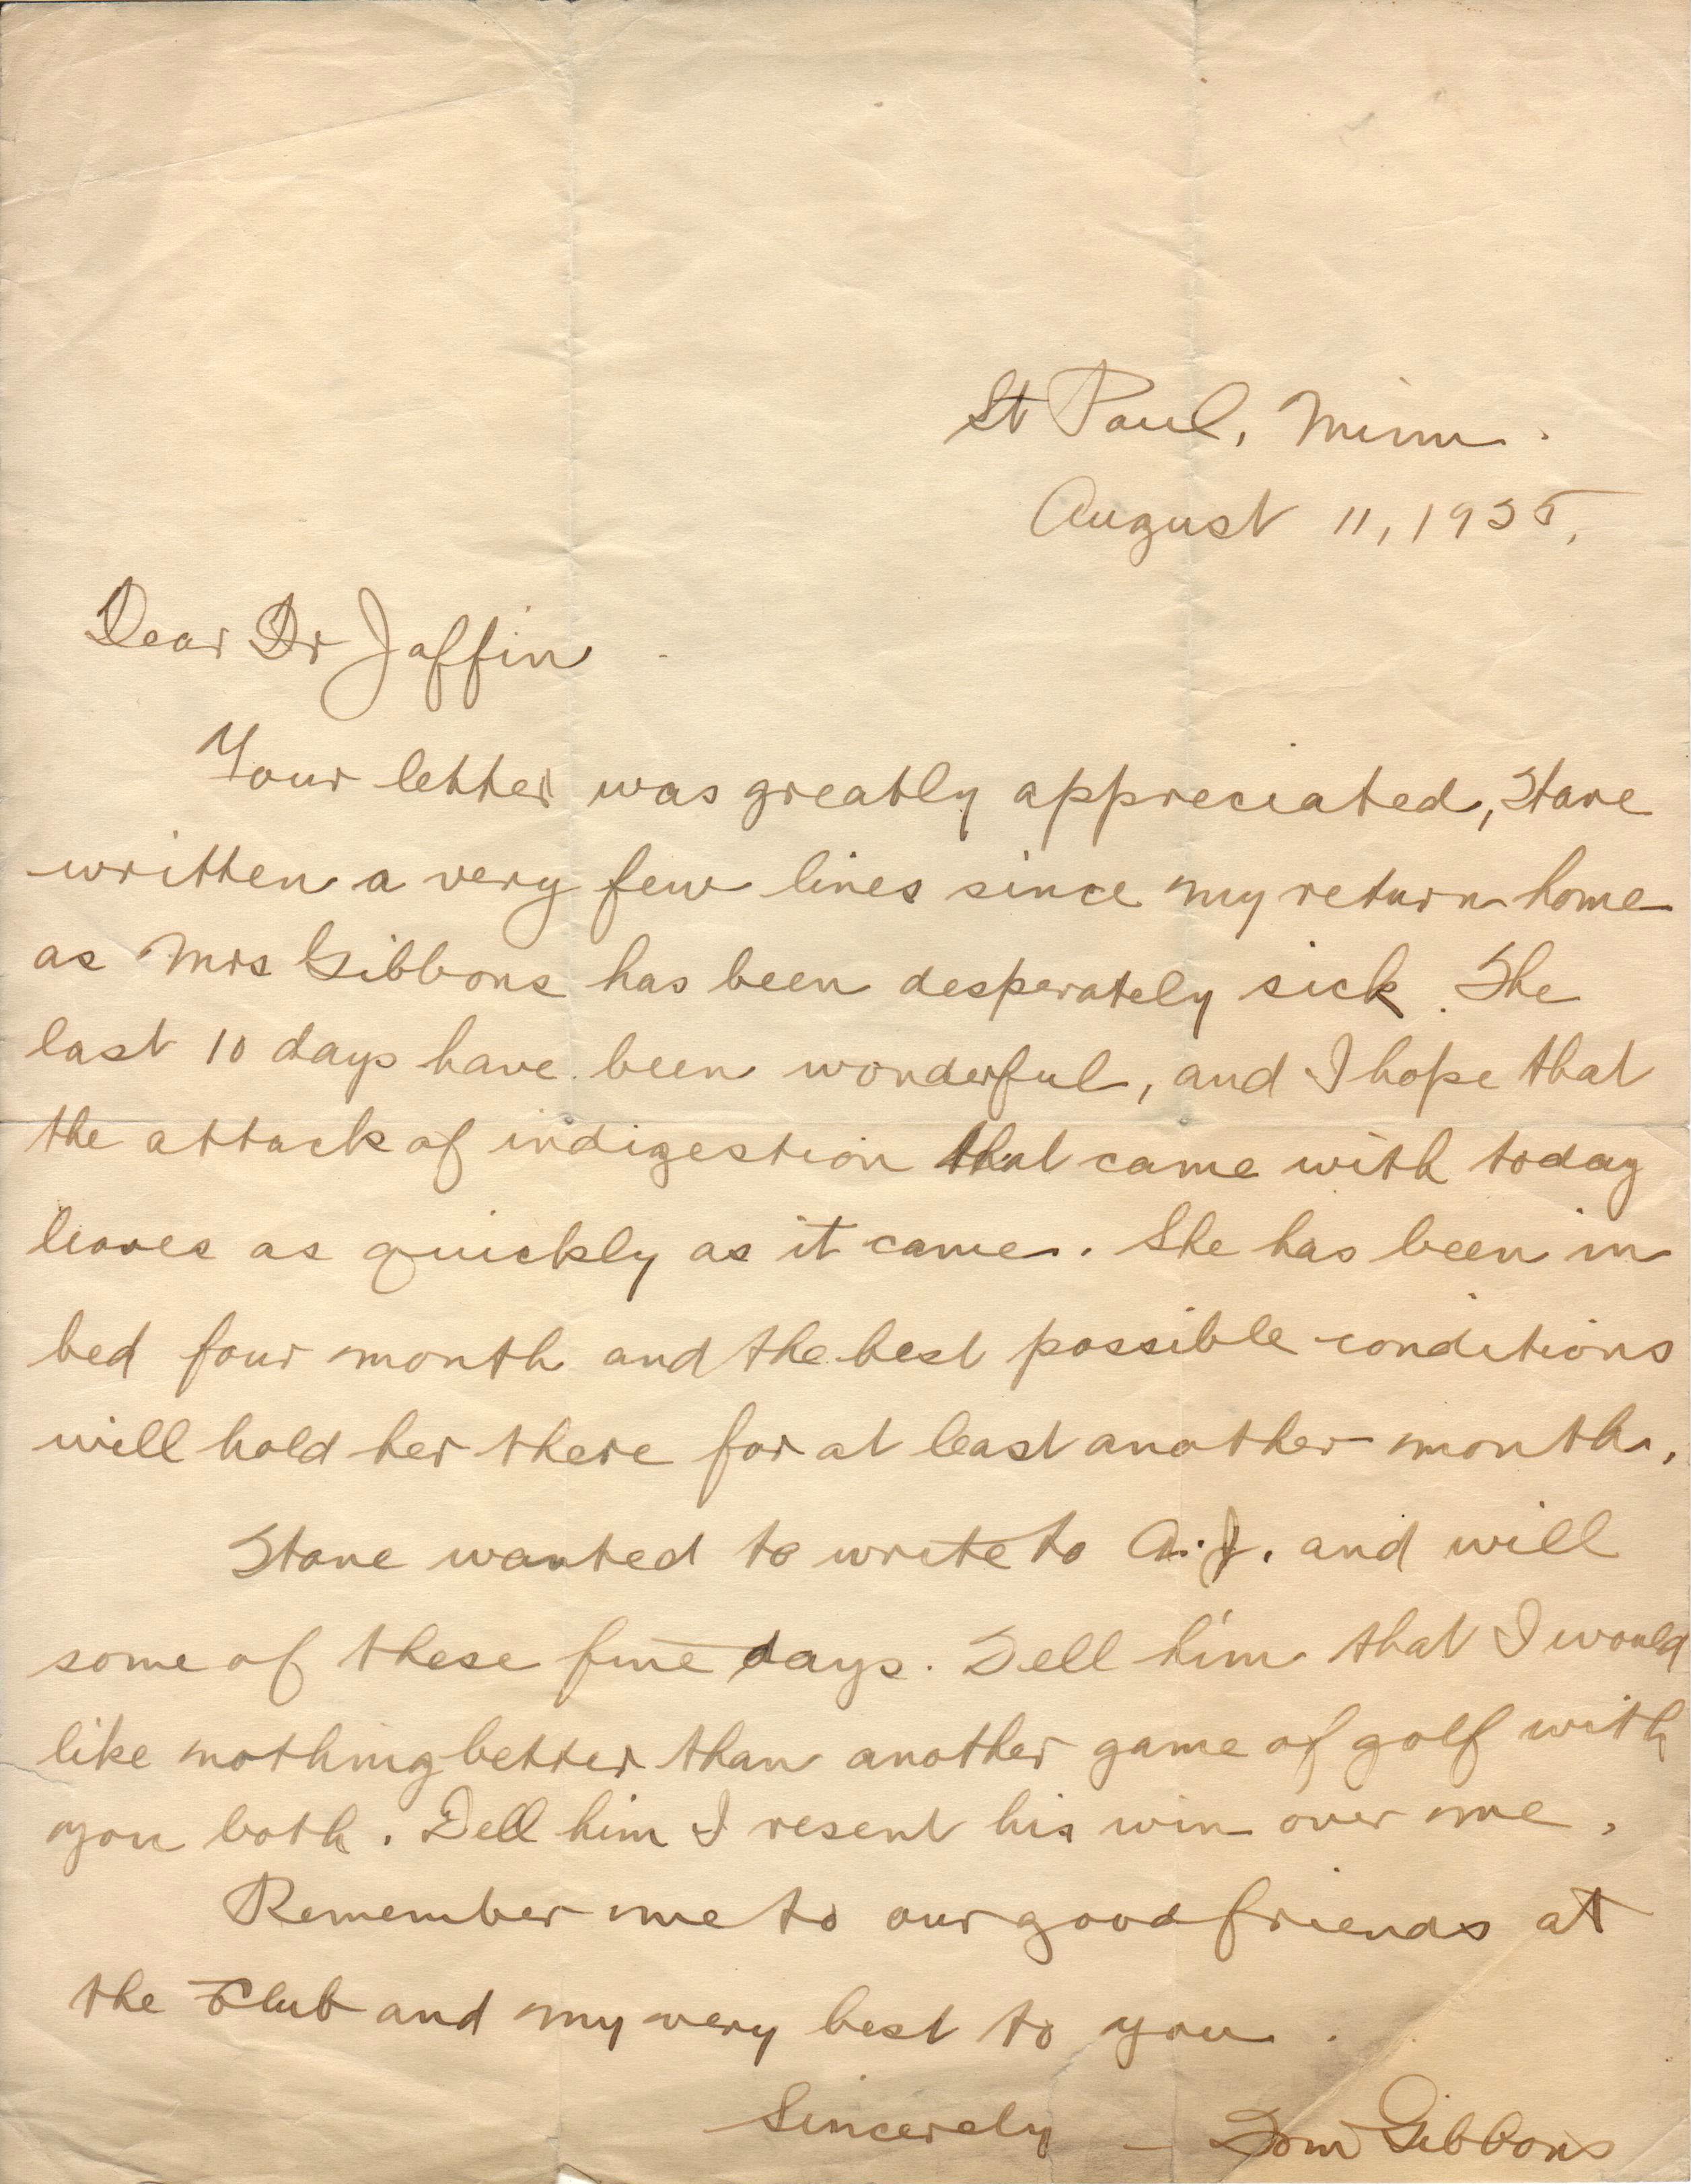 St Paul, Minn.
August 11, 1935.
Dear Dr Jaffin
Your letter was greatly appreciated, Have
written a very few lines since my return home
as Mrs Gibbons has been desperately sick. The
last 10 days have been wonderful, and I hope that
the attack of indigestion that came with today
leaves as quickly as it came. She has been in
bed four month and the best possible conditions
will hold her there for at least another month.
Have wanted to write to A.J. and will
some of these fine days. Tell him that I would
like nothing better than another game of golf with
you both. Tell him I resent his win over me.
Remember me to our good friends at
the Club and my very best to you.
Sincerely — Tom Gibbons